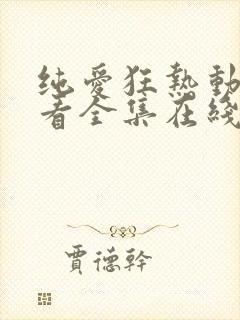 纯爱狂热动
看全集在线
贾德幹